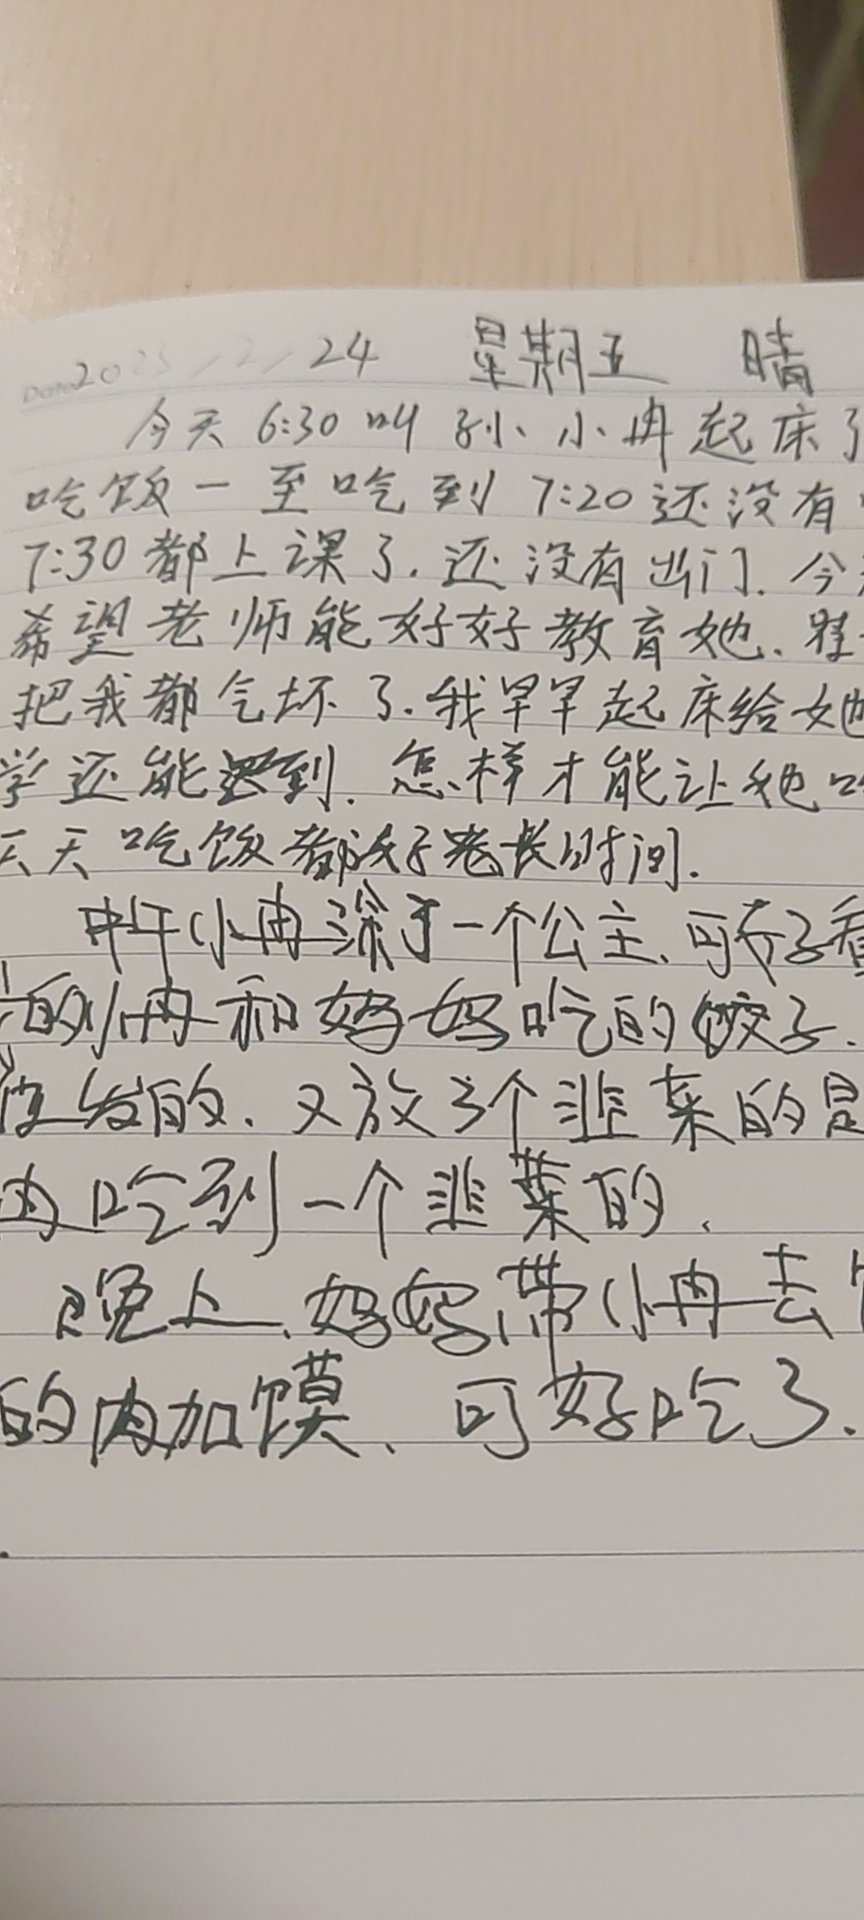 2023/2/24 星期五 晴
今天6:30叫孙小冉起床了
吃饭一至吃到7:20还没有
7:30都上课了.还没有出门.今
希望老师能好好教育她、
把我都气坏了.我早早起床给她
学还能迟到.怎样才能让她吃
天天吃饭都好长时间.
中午小冉涂了一个公主、可 看
的小冉和妈妈吃的饺子.
皮 的、又放3个韭菜的是
冉吃到一个韭菜的、
晚上、妈妈带小冉去
的肉加馍、可好吃了.